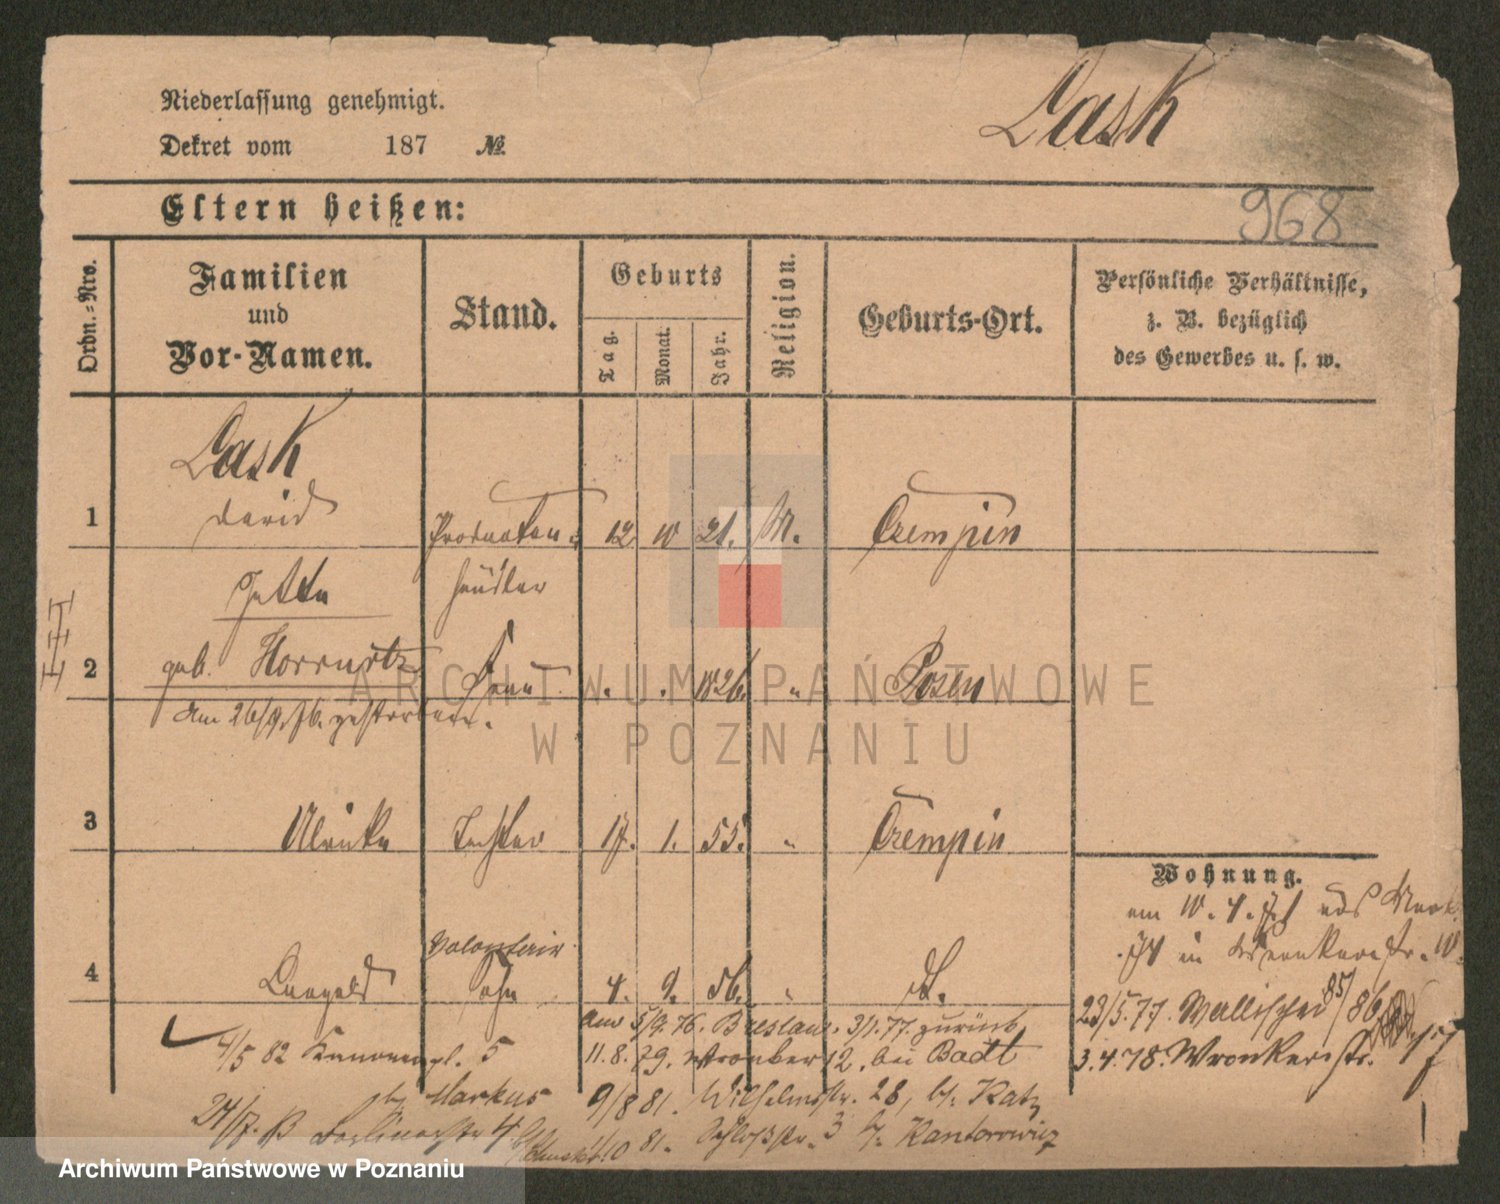 Niederlassung genehmigt.
Lask
Dekret vom 187 №
Eltern heißen:
968
Ordn.-Nro.
Familien
und
Vor-Namen.
Stand.
Geburts
Tag.
Monat.
Jahr.
Religion.
Geburts-Ort.
Persönliche Verhältnisse,
z. B. bezüglich
des Gewerbes u. s. w.
Lask
1 David Producten- 12. 10 21. M. Czempin
Jette händler
2 geb. Horrwitz Frau . . 1826. " Posen
Am 26/9. 76. gestorben.
3 Ulrike Tochter 17. 1. 55. " Czempin
Wohnung.
am 10. 4. Markt
in Wronkerstr. 10.
Volontair
4 Leopold Sohn 4. 9. 56. " d.
23/5. 77. Wallischei 85/86
Am 5/9. 76. Breslau. 3/1. 77. zurück
4/5 82 Kanonenpl. 5
11. 8. 79. Wronker 12. bei Badt
3. 4. 78. Wronkerstr.
by Markus
9/8 81. Wilhelmstr. 28, by: Katz
24/7. B 4
10 81. Schloßstr. 3 by: Kantorowicz
ARCHIWUM PAŃSTWOWE
W POZNANIU
Archiwum Państwowe w Poznaniu